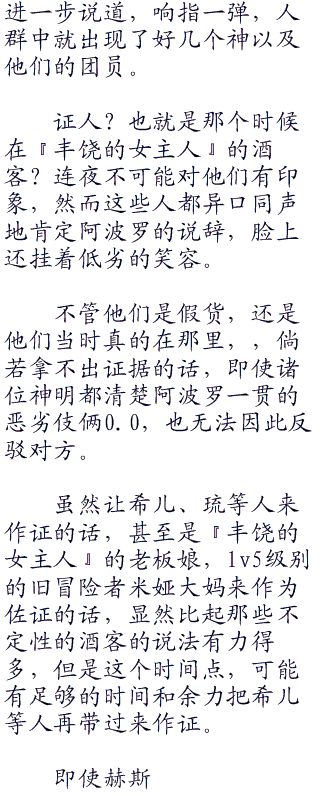 进一步说道，响指一弹，人
群中就出现了好几个神以及
他们的团员。
证人？也就是那个时候
在『丰饶的女主人』的酒
客？连夜不可能对他们有印
象，然而这些人都异口同声
地肯定阿波罗的说辞，脸上
还挂着低劣的笑容。
不管他们是假货，还是
他们当时真的在那里，，倘
若拿不出证据的话，即使诸
位神明都清楚阿波罗一贯的
恶劣伎俩0.0，也无法因此反
驳对方。
虽然让希儿、琉等人来
作证的话，甚至是『丰饶的
女主人』的老板娘，lv5级别
的旧冒险者米娅大妈来作为
佐证的话，显然比起那些不
定性的酒客的说法有力得
多，但是这个时间点，可能
有足够的时间和余力把希儿
等人再带过来作证。
即使赫斯